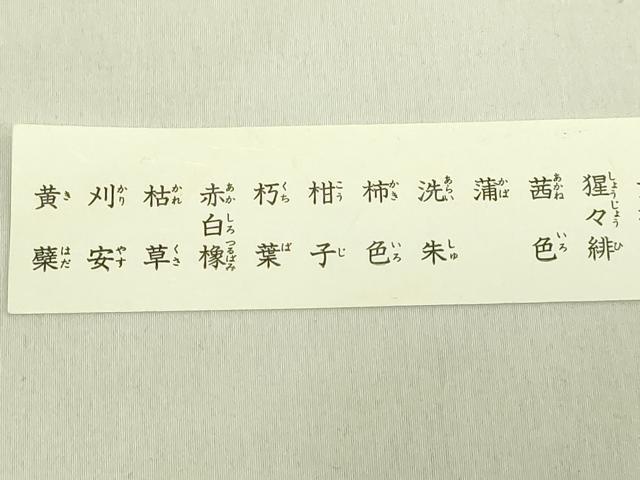 猩々緋 しょうじょうひ
茜色 あかねいろ
蒲 かば
洗朱 あらいしゅ
柿色 かきいろ
柑子 こうじ
朽葉 くちば
赤白橡 あかしろつるばみ
枯草 かれくさ
刈安 かりやす
黄蘗 きはだ